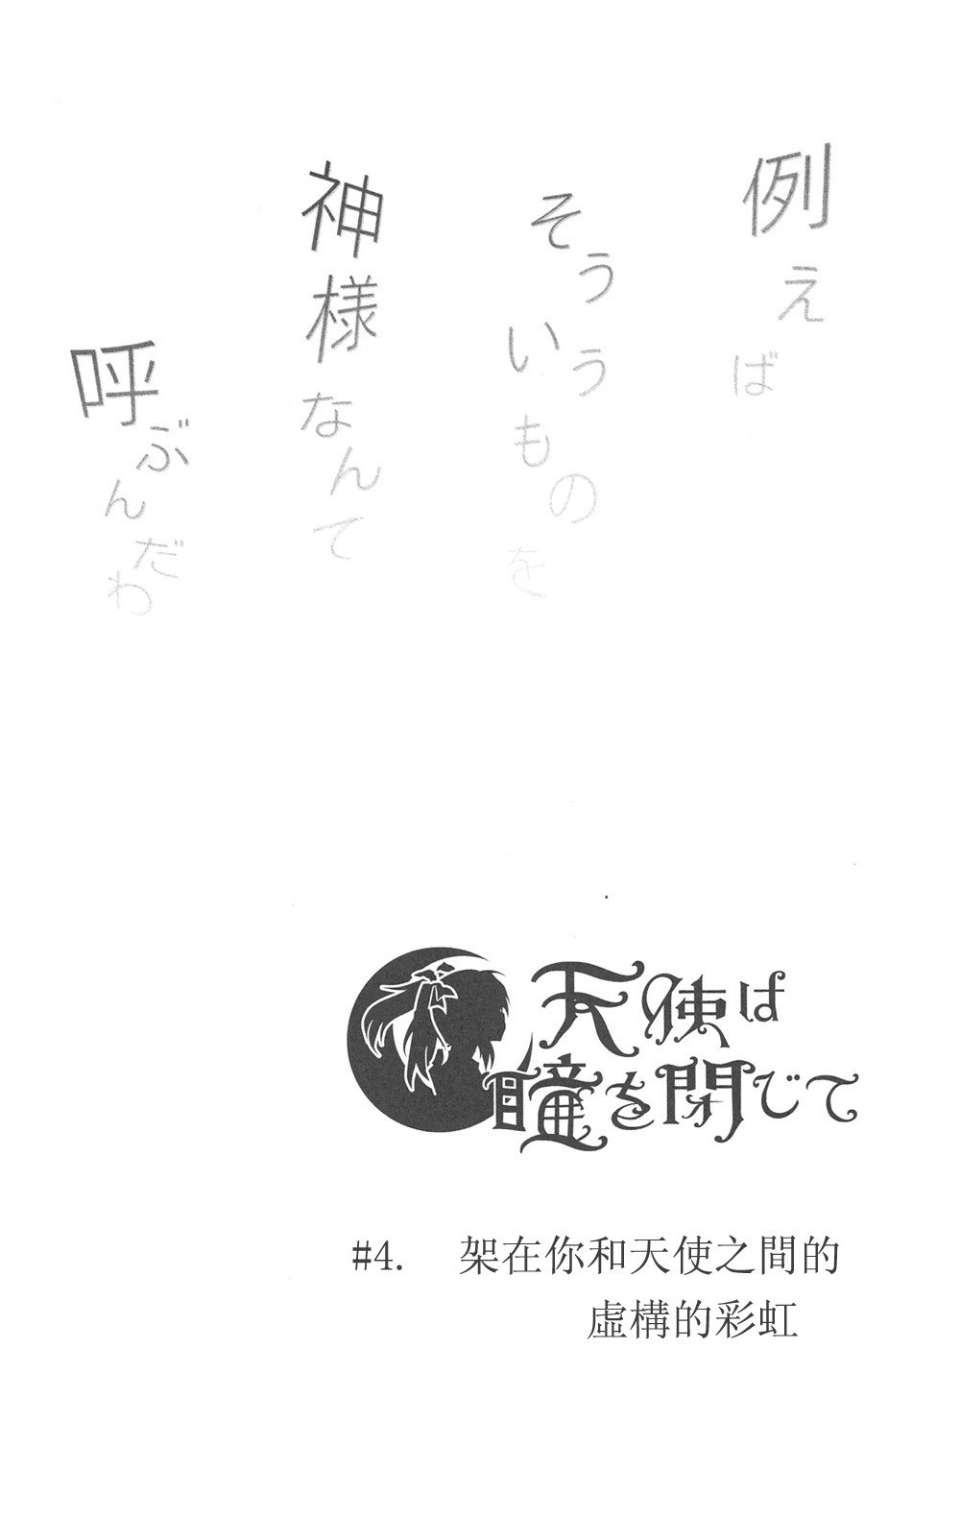 例えば
そういうものを
神様なんて
呼ぶんだわ
天使は
瞳を閉じて
#4. 架在你和天使之間的
虛構的彩虹